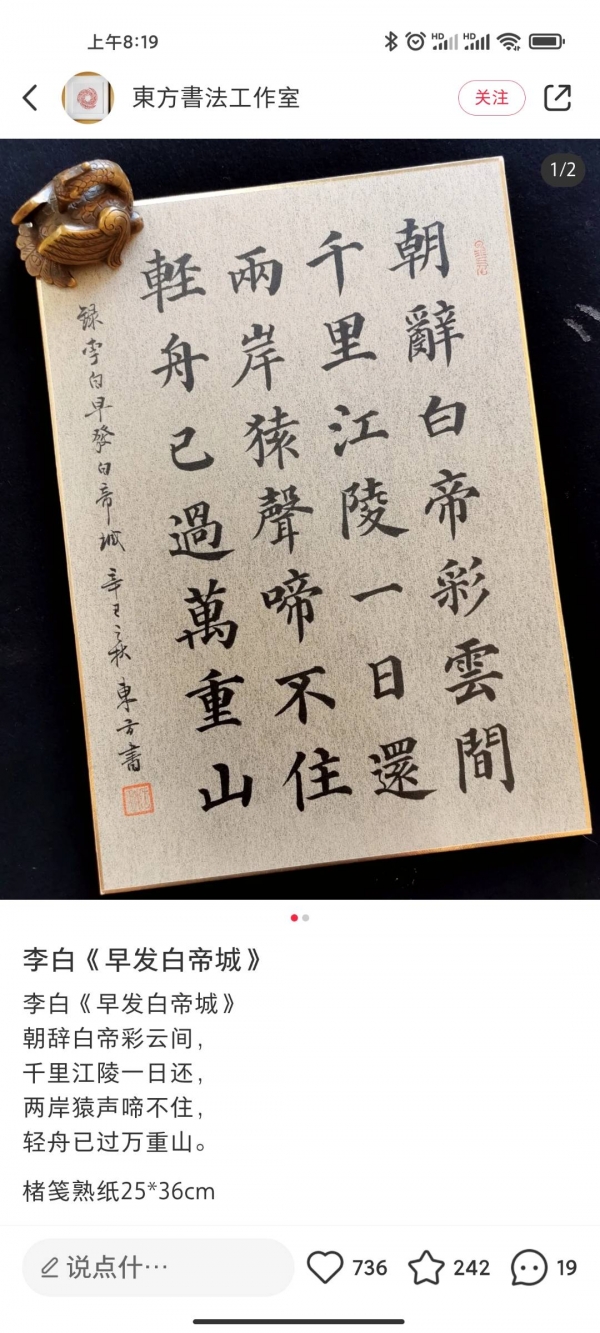 上午8:19
HD HD
東方書法工作室
关注
1/2
朝辭白帝彩雲間
千里江陵一日還
兩岸猿聲啼不住
輕舟已過萬重山
錄李白早發白帝城 辛丑之秋 東方書
李白《早发白帝城》
李白《早发白帝城》
朝辞白帝彩云间，
千里江陵一日还，
两岸猿声啼不住，
轻舟已过万重山。
楮笺熟纸25*36cm
说点什…
736
242
19